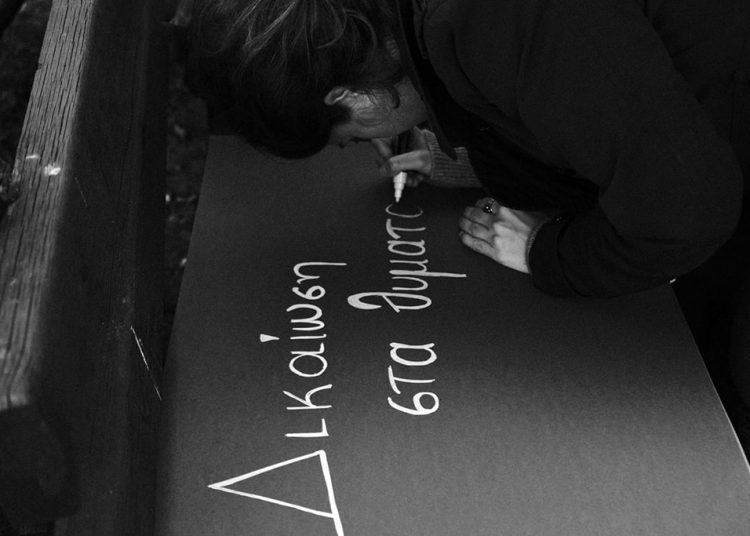 Δικαίωση
στα θυματ